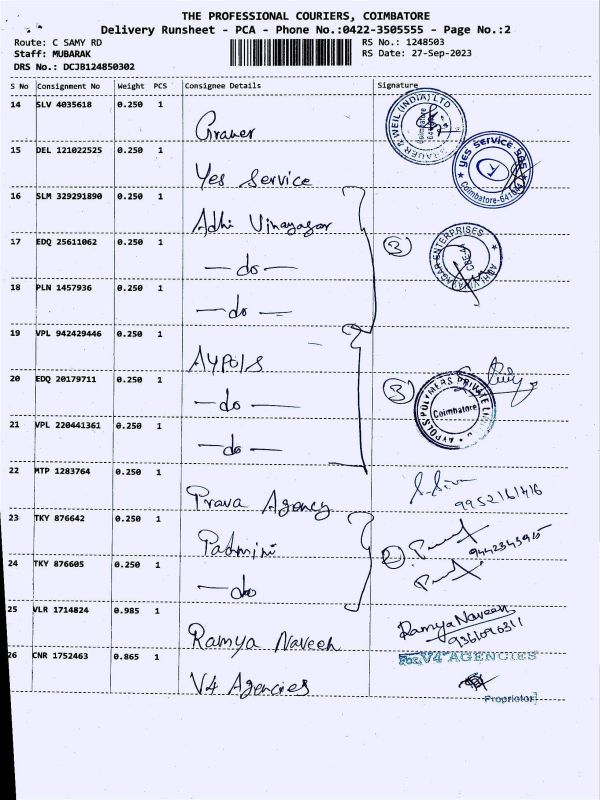 THE PROFESSIONAL COURIERS, COIMBATORE
Delivery Runsheet - PCA - Phone No.:0422-3505555 - Page No.:2
Route: C SAMY RD RS No.: 1248503
Staff: MUBARAK RS Date: 27-Sep-2023
DRS No.: DCJB124850302
S No Consignment No Weight PCS Consignee Details Signature
14 SLV 4035618 0.250 1
Grauer
GRAUER & WEIL (INDIA) LTD Coimbatore
15 DEL 121022525 0.250 1
Yes Service
Yes Service Coimbatore-641
16 SLM 329291890 0.250 1
Adhi Vinayagar
17 EDQ 25611062 0.250 1 3
ADHI VINAYAGAR ENTERPRISES
— do —
18 PLN 1457936 0.250 1
— do —
19 VPL 942429446 0.250 1
AYPOLS
20 EDQ 20179711 0.250 1 3
AYPOLS POLYMERS PRIVATE LIMITED Coimbatore
— do —
21 VPL 220441361 0.250 1
— do —
22 MTP 1283764 0.250 1
9952161416
Prava Agency
23 TKY 876642 0.250 1
Padmini 2
24 TKY 876605 0.250 1
— do
25 VLR 1714824 0.985 1 Ramya Naveen
Ramya Naveen
26 CNR 1752463 0.865 1 For V4 AGENCIES
V4 Agencies
Proprietor